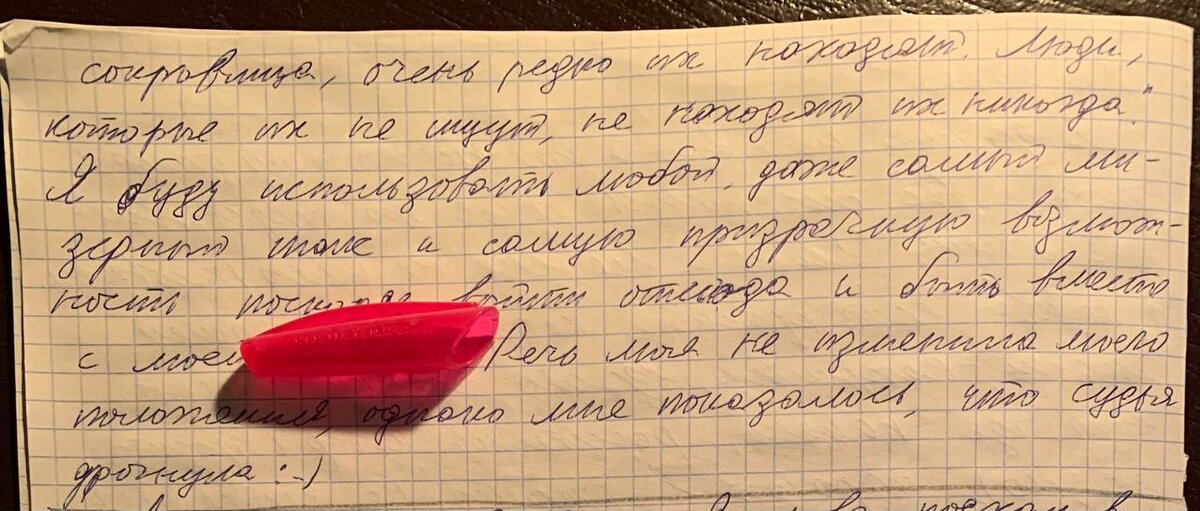 сокровища, очень редко их находят. Люди,
которые их не ищут, не находят их никогда."
Я буду использовать любой, даже самый ми-
зерный шанс и самую призрачную возмож-
ность выйти отсюда и быть вместе
с моей Речь моя не изменила моего
положения, однако мне показалось, что судья
дрогнула :-)